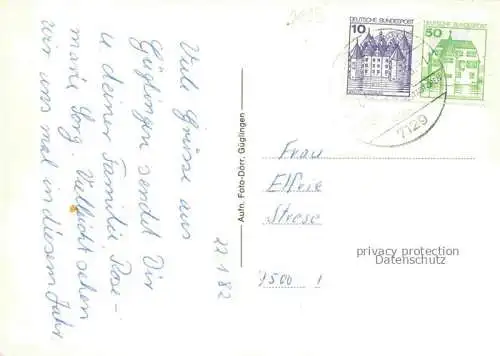 Viele Grüsse aus
Güglingen sendet Dir
u deiner Familie, Rose-
marie Song. Vielleicht sehen
wir uns mal in diesem Jahr.
22 1 82
Aufn. Foto-Dörr, Güglingen
DEUTSCHE BUNDESPOST
10
DEUTSCHE BUNDESPOST
50
7129
Frau
Elfrie
Strese
7500 1
privacy protection
Datenschutz